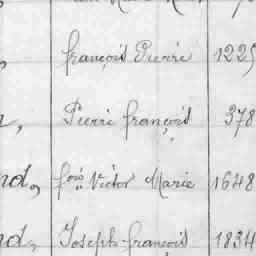 françois Pierre 1225
Pierre françois 378
nd, fois Victor Marie 1648
nd, Joseph françois 1834